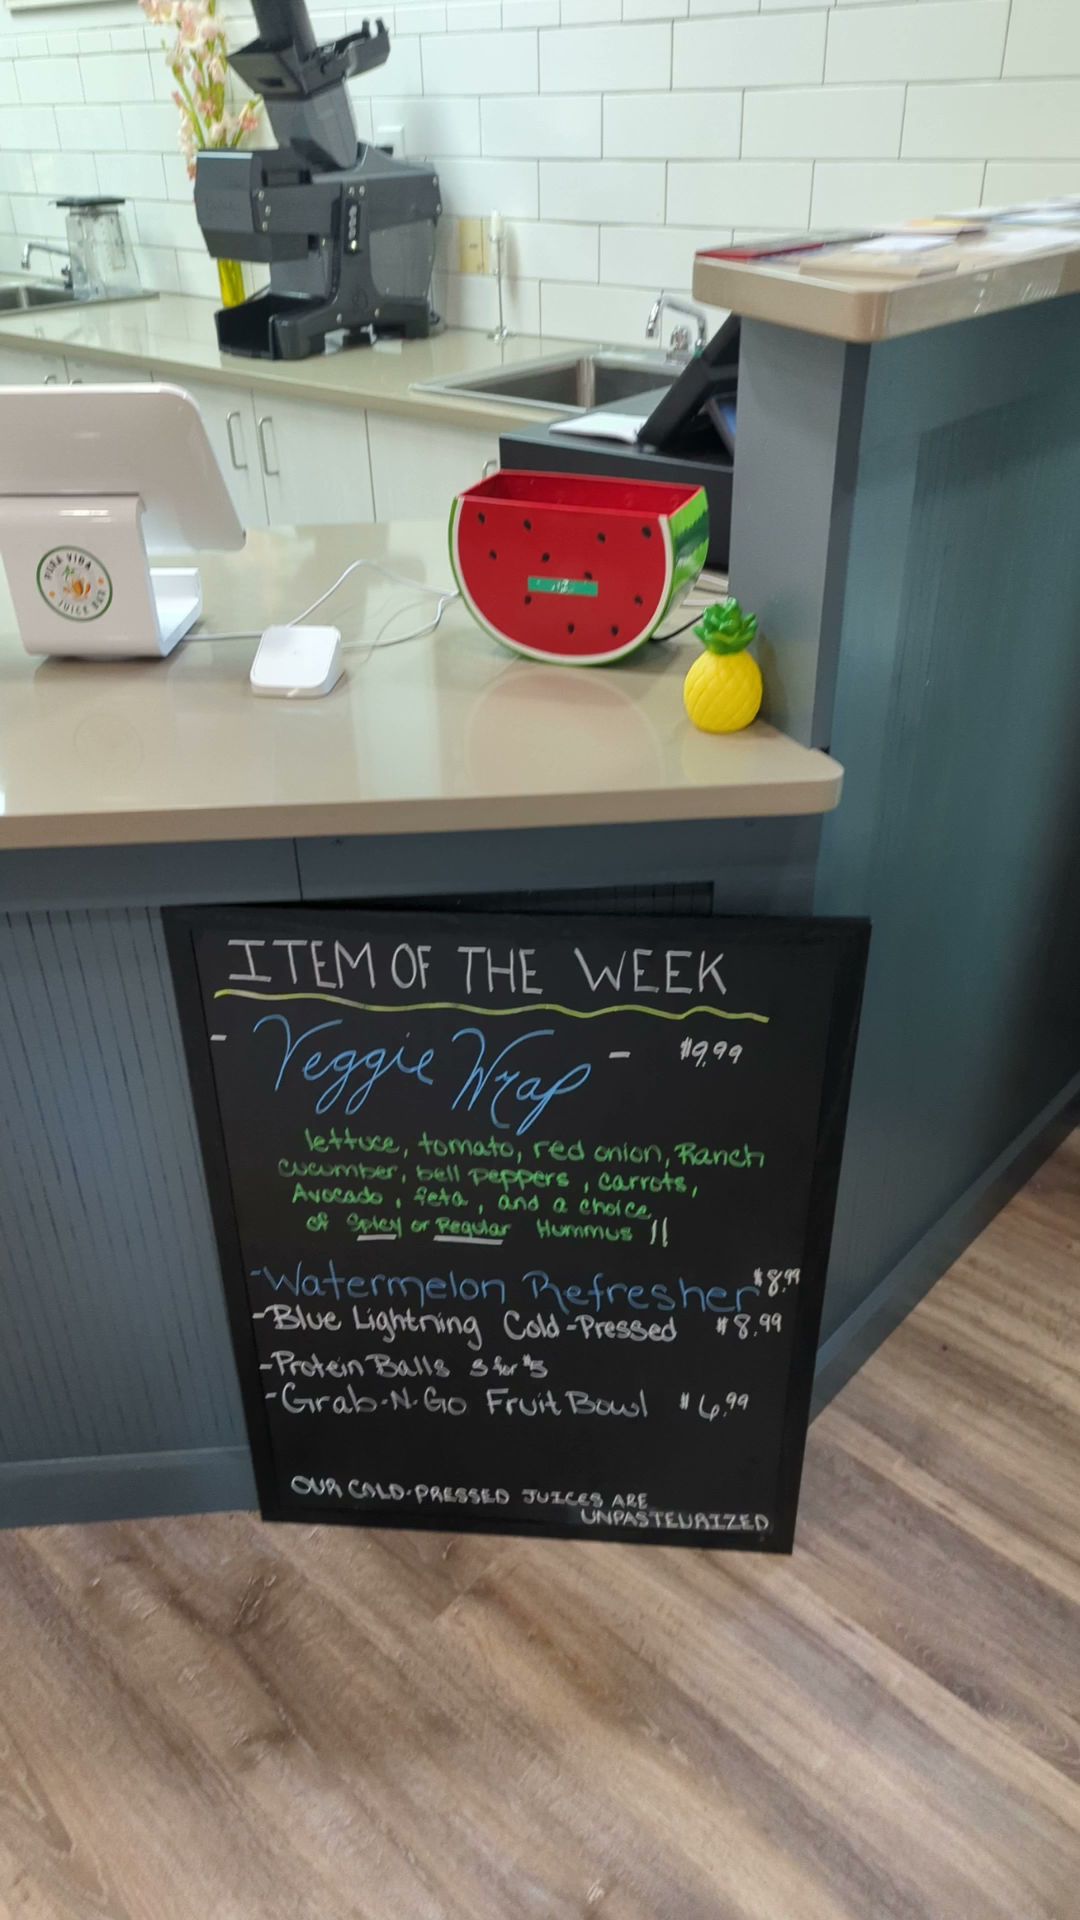 PURA VIDA
JUICE BAR
ITEM OF THE WEEK
- Veggie Wrap - $9.99
lettuce, tomato, red onion, Ranch
cucumber, bell peppers, carrots,
Avocado, feta, and a choice
of Spicy or Regular Hummus !!
-Watermelon Refresher $8.99
-Blue Lightning Cold-Pressed $8.99
-Protein Balls 3 for $5
-Grab-N-Go Fruit Bowl $6.99
OUR COLD-PRESSED JUICES ARE
UNPASTEURIZED